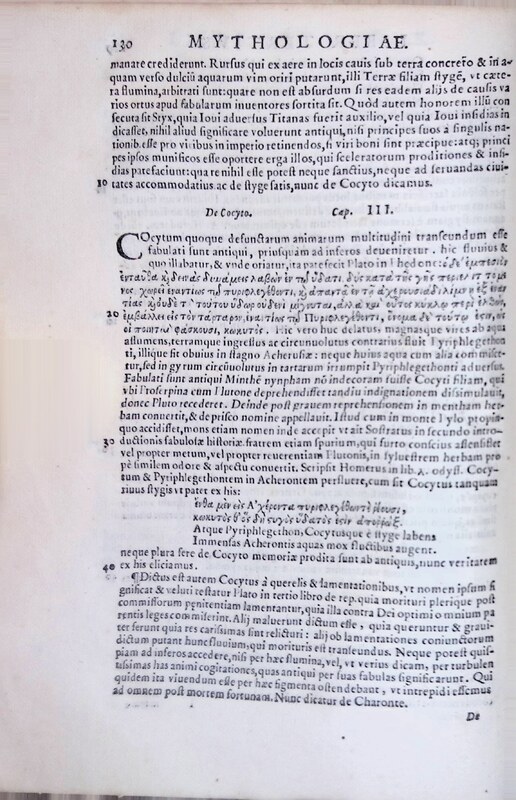 130 MYTHOLOGIAE.
manare crediderunt. Rursus qui ex aere in locis cauis sub terra concreto & in a-
quam verso dulciũ aquarum vim oriri putarunt, illi Terræ filiam stygẽ, vt cæte-
ra flumina, arbitrati sunt: quare non est absurdum si res eadem alijs de causis va
rios ortus apud fabularum inuentores sortita sit. Quòd autem honorem illũ con
secuta sit Styx, quia Ioui aduersus Titanas fuerit auxilio, vel quia Ioui insidias in
dicasset, nihil aliud significare voluerunt antiqui, nisi principes suos à singulis na-
tionib. esse pro viribus in imperio retinendos, si viri boni sint præcipue: atq; princi
pes ipsos munificos esse oportere erga illos, qui sceleratorum proditiones & insi-
dias patefaciunt: qua re nihil esse potest neque sanctius, neque ad seruandas ciui-
10 tates accommodatius. ac de styge satis, nunc de Cocyto dicamus.
De Cocyto. Cap. III.
COcytum quoque defunctarum animarum multitudini transeundum esse
fabulati sunt antiqui, priusquam ad inferos deueniretur. hic fluuius &
quo illabatur, & vnde oriatur, ita patefecit Plato in Phedone:
20
Hic vero huc delatus, magnasque vires ab aqua
assumens, terramque ingressus ac circumuolutus contrarius fluit Pyriphlegethon
ti, illique fit obuius in stagno Acherusiæ: neque huius aqua cum alia commisce-
tur, sed in gyrum circũuolutus in tartarum irrumpit Pyriphlegethonti aduersus.
Fabulati sunt antiqui Minthẽ nynpham nõ indecoram fuisse Cocyti filiam, qui
vbi Proserpina cum Plutone deprehendisset tandiu indignationem dissimulauit,
donec Pluto recederet. Deinde post grauem reprehensionem in mentham her-
bam conuertit, & de prisco nomine appellauit. Istud cum in monte Pylo propin-
quo accidisset, mons etiam nomen inde accepit vt ait Sostratus in secundo intro-
30 ductionis fabulosæ historiæ. fratrem etiam spurium, qui furto conscius assensisset
vel propter metum, vel propter reuerentiam Plutonis, in syluestrem herbam pro
pè similem odore & aspectu conuertit. Scripsit Homerus in lib. κ. odyss. Cocy-
tum & Pyriphlegethontem in Acherontem persluere, cum sit Cocytus tanquam
riuus stygis vt patet ex his:
ἔνθα μὲν εἰς Ἀχέροντα πυριφλεγέθων τε ῥέουσι,
κωκυτός θ' ὃς δὴ στυγὸς ὕδατός ἐστιν ἀπορρώξ.
Atque Pyriphlegethon, Cocytusque è styge labens
Immensas Acherontis aquas mox fluctibus augent.
neque plura fere de Cocyto memoriæ prodita sunt ab antiquis, nunc veritatem
40 ex his eliciamus.
¶ Dictus est autem Cocytus à querelis & lamentationibus, vt nomen ipsum si
gnificat & veluti testatur Plato in tertio libro de rep. quia morituri plerique post
commissorum penitentiam lamentantur, quia illa contra Dei optimi omnium pa
rentis leges commiserint. Alij maluerunt dictum esse, quia queruntur & graui-
ter ferunt quia res carissimas sint relicturi: alij ob lamentationes coniunctorum
dictum putant hunc fluuium, qui morituris est transeundus. Neque potest quis-
piam ad inferos accedere, nisi per hæc flumina, vel, vt verius dicam, per turbulen
tissimas has animi cogitationes, quas antiqui per suas fabulas significarunt. Qui
quidem ita viuendum esse per hæc figmenta ostendebant, vt intrepidi essemus
ad omnem post mortem fortunam. Nunc dicatur de Charonte.
De